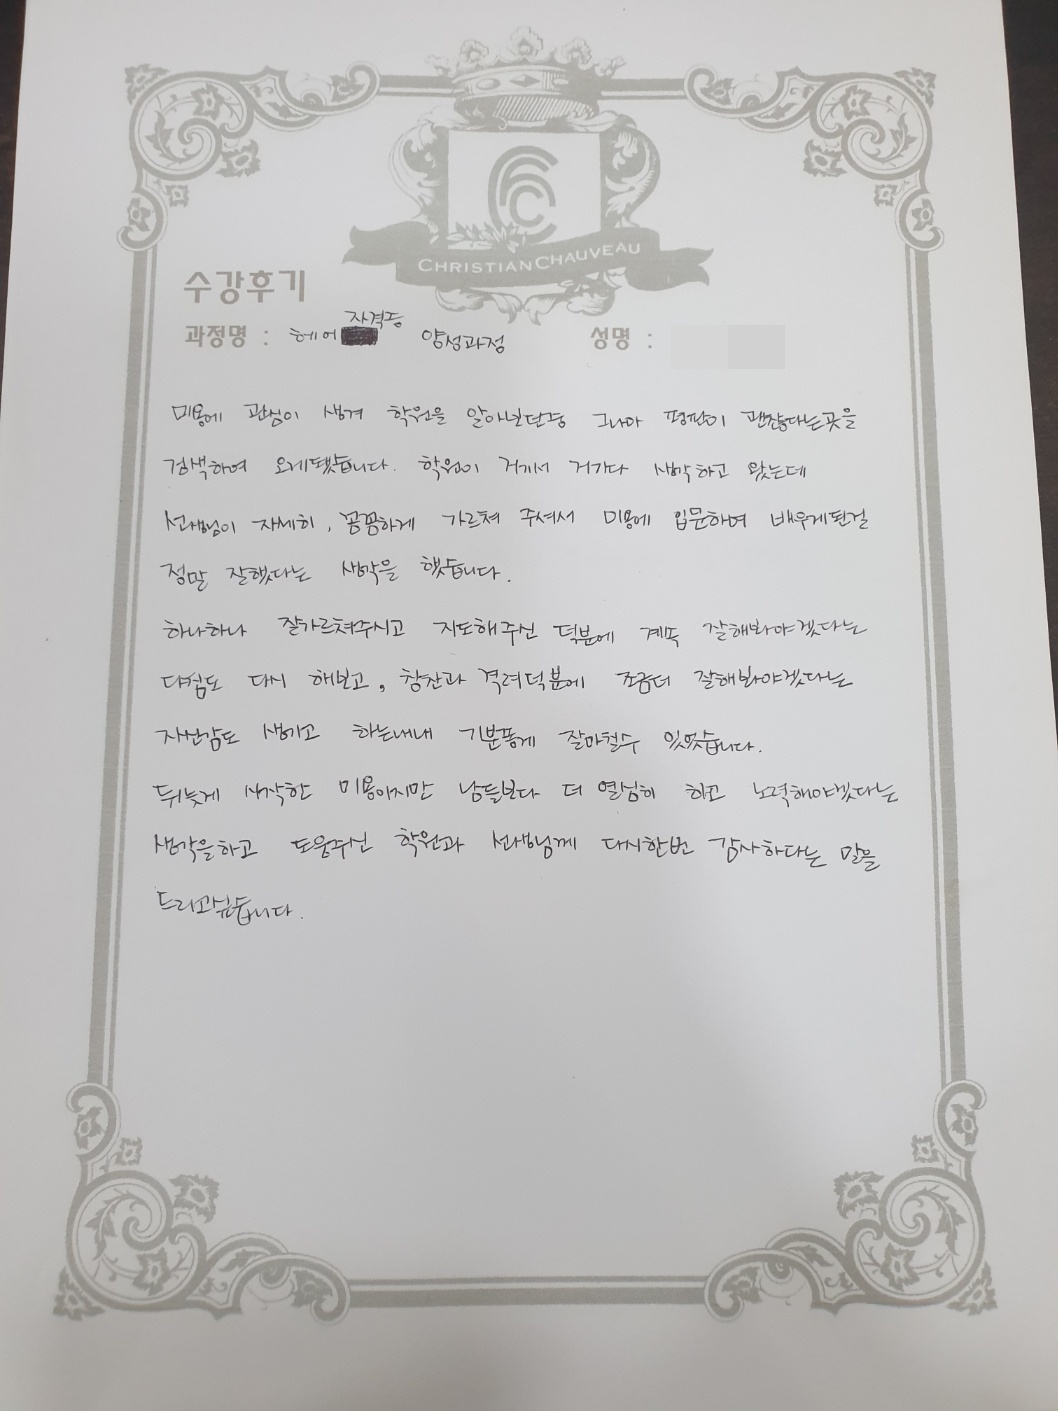 CHRISTIAN CHAUVEAU
수강후기
과정명 : 헤어 자격증 양성과정 성명 :
미용에 관심이 생겨 학원을 알아보던중 그나마 평판이 괜찮다는곳을
검색하여 오게됐습니다. 학원이 거기서 거기다 생각하고 왔는데
선생님이 자세히, 꼼꼼하게 가르쳐 주셔서 미용에 입문하여 배우게된걸
정말 잘했다는 생각을 했습니다.
하나하나 잘가르쳐주시고 지도해주신 덕분에 계속 잘해봐야겠다는
다짐도 다시 해보고, 칭찬과 격려덕분에 조금더 잘해봐야겠다는
자신감도 생기고 하는내내 기분좋게 잘마칠수 있었습니다.
뒤늦게 시작한 미용이지만 남들보다 더 열심히 하고 노력해야겠다는
생각을하고 도움주신 학원과 선생님께 다시한번 감사하다는 말을
드리고싶습니다.